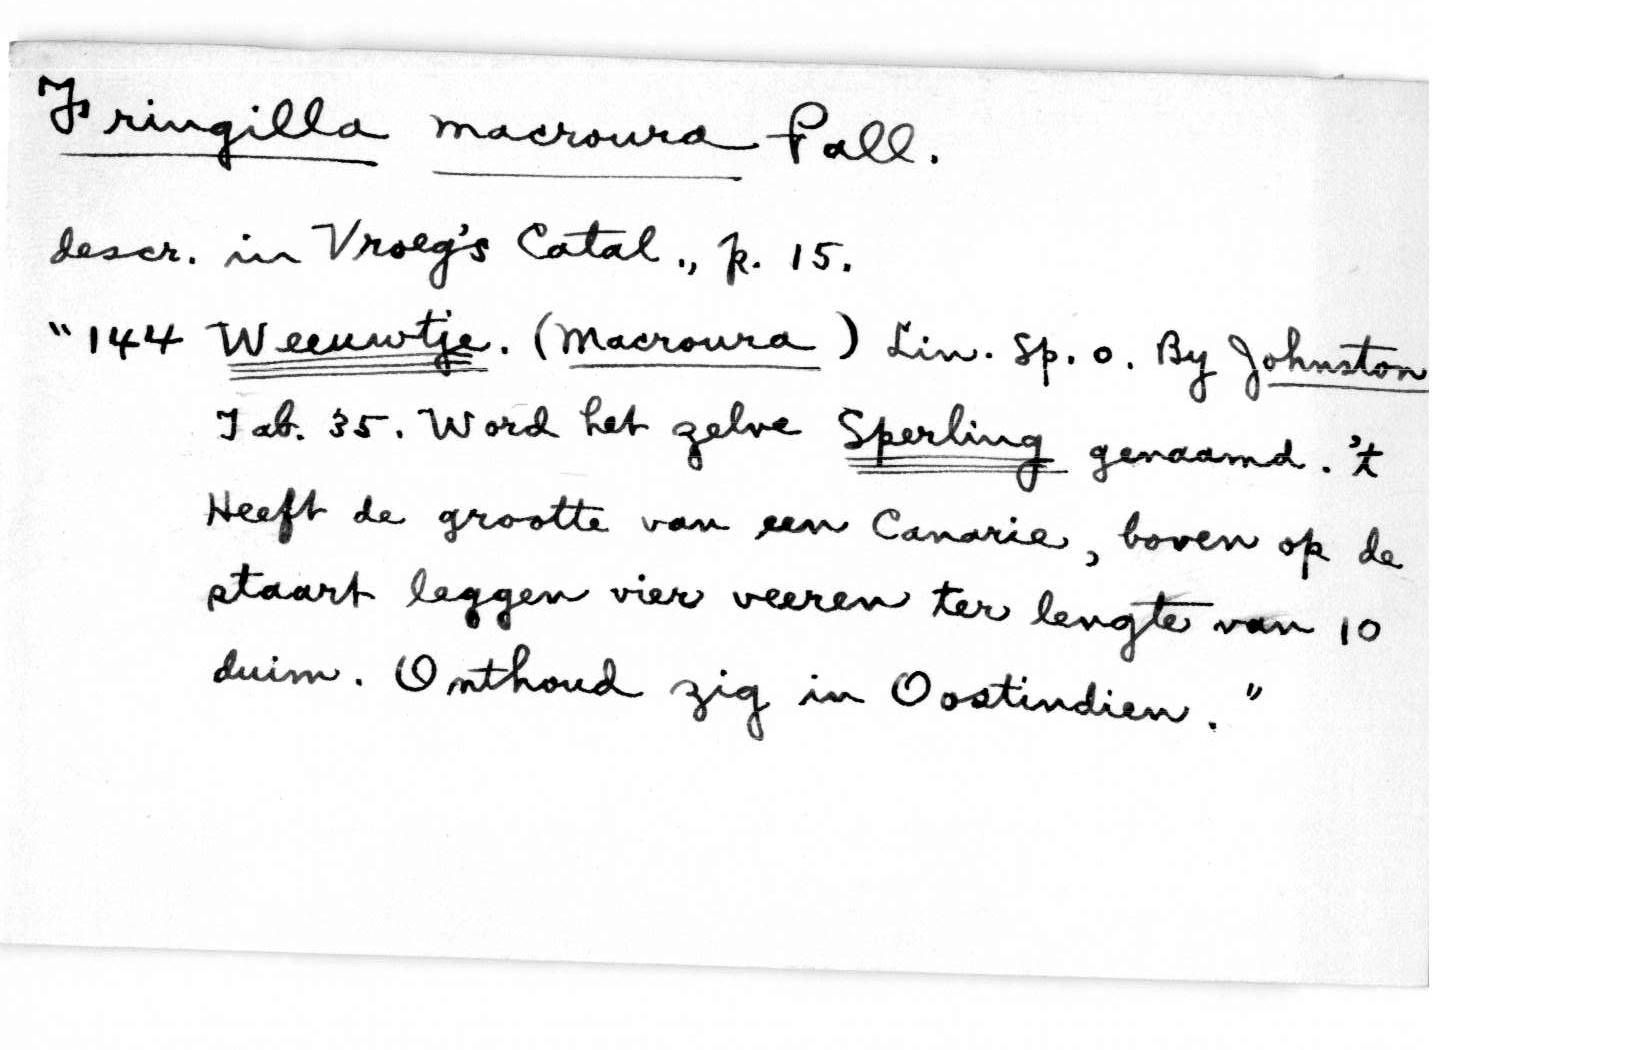 Fringilla macroura Pall.
descr. in Vroeg's Catal., p. 15.
"144 Weeuwtje. (Macroura) Lin. Sp. o. By Johnston
Tab. 35. Word het zelve Sperling genaamd. 't
Heeft de grootte van een Canarie, boven op de
staart leggen vier veeren ter lengte van 10
duim. Onthoud zig in Oostindien."